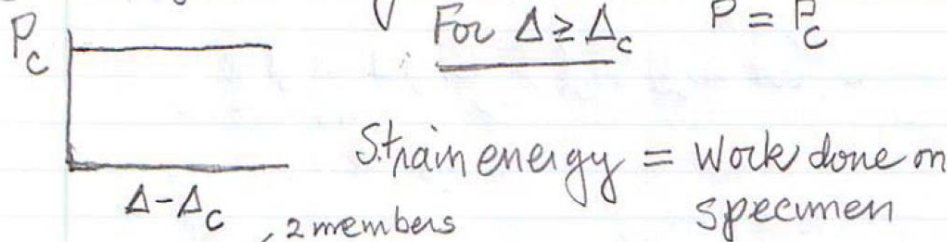 For Δ ≥ Δc P = Pc
Pc
Strain energy = Work done on
specimen
Δ-Δc
, 2 members